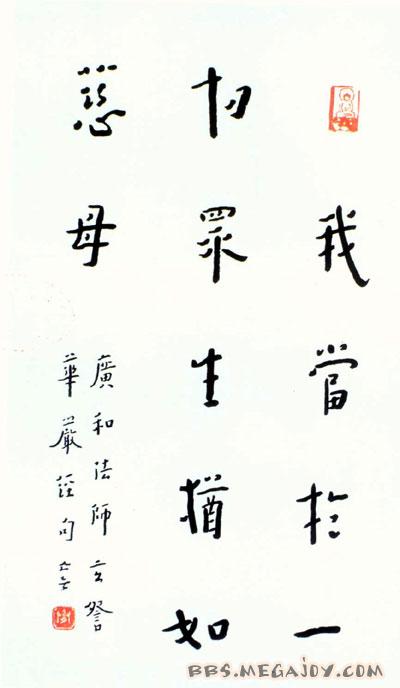 我當於一
切眾生猶如
慈母
廣和法師玄詧
華嚴經句
BBS.MEGAJOY.COM